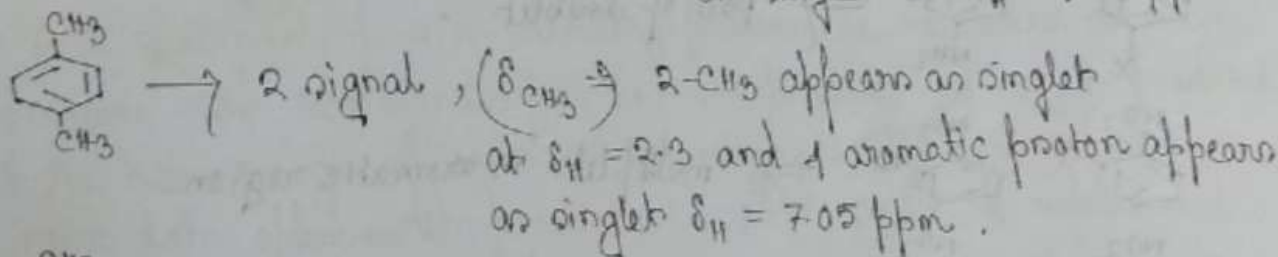 CH3
CH3
→ 2 signal, (δCH3 → 2-CH3 appears as singlet
at δH = 2.3 and 4 aromatic proton appears
as singlet δH = 7.05 ppm.